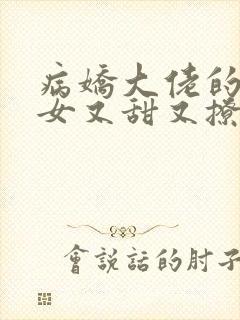 病嬌大佬的
女又甜又撩
會說話的肘子